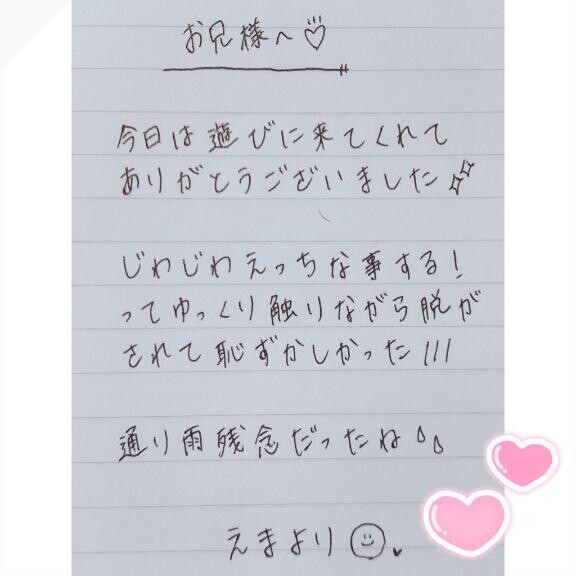 お兄様へ♡
今日は遊びに来てくれて
ありがとうございました
じわじわえっちな事する!
ってゆっくり触りながら脱が
されて恥ずかしかった///
通り雨残念だったね
えまより